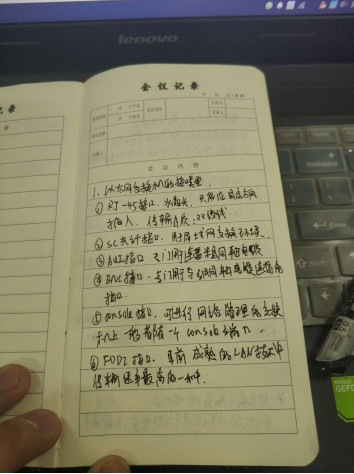 lenovo
会议记录
记录
会议内容
1、以太网交换机的接口类型
① RJ-45接口、水晶头、只能沿固定方向
插入、传输介质:双绞线
② SC光纤接口、用于局域网交换环境、
③ AUI接口 专门用于连接粗同轴电缆
④ BNC接口、专门用于与细同轴电缆连接的
接口
⑤ console接口、可进行网络管理的交换
机上一般都有一个console端口、
⑥ FDDI接口、目前成熟的LAN技术中
传输速率最高的一种.
GEFO